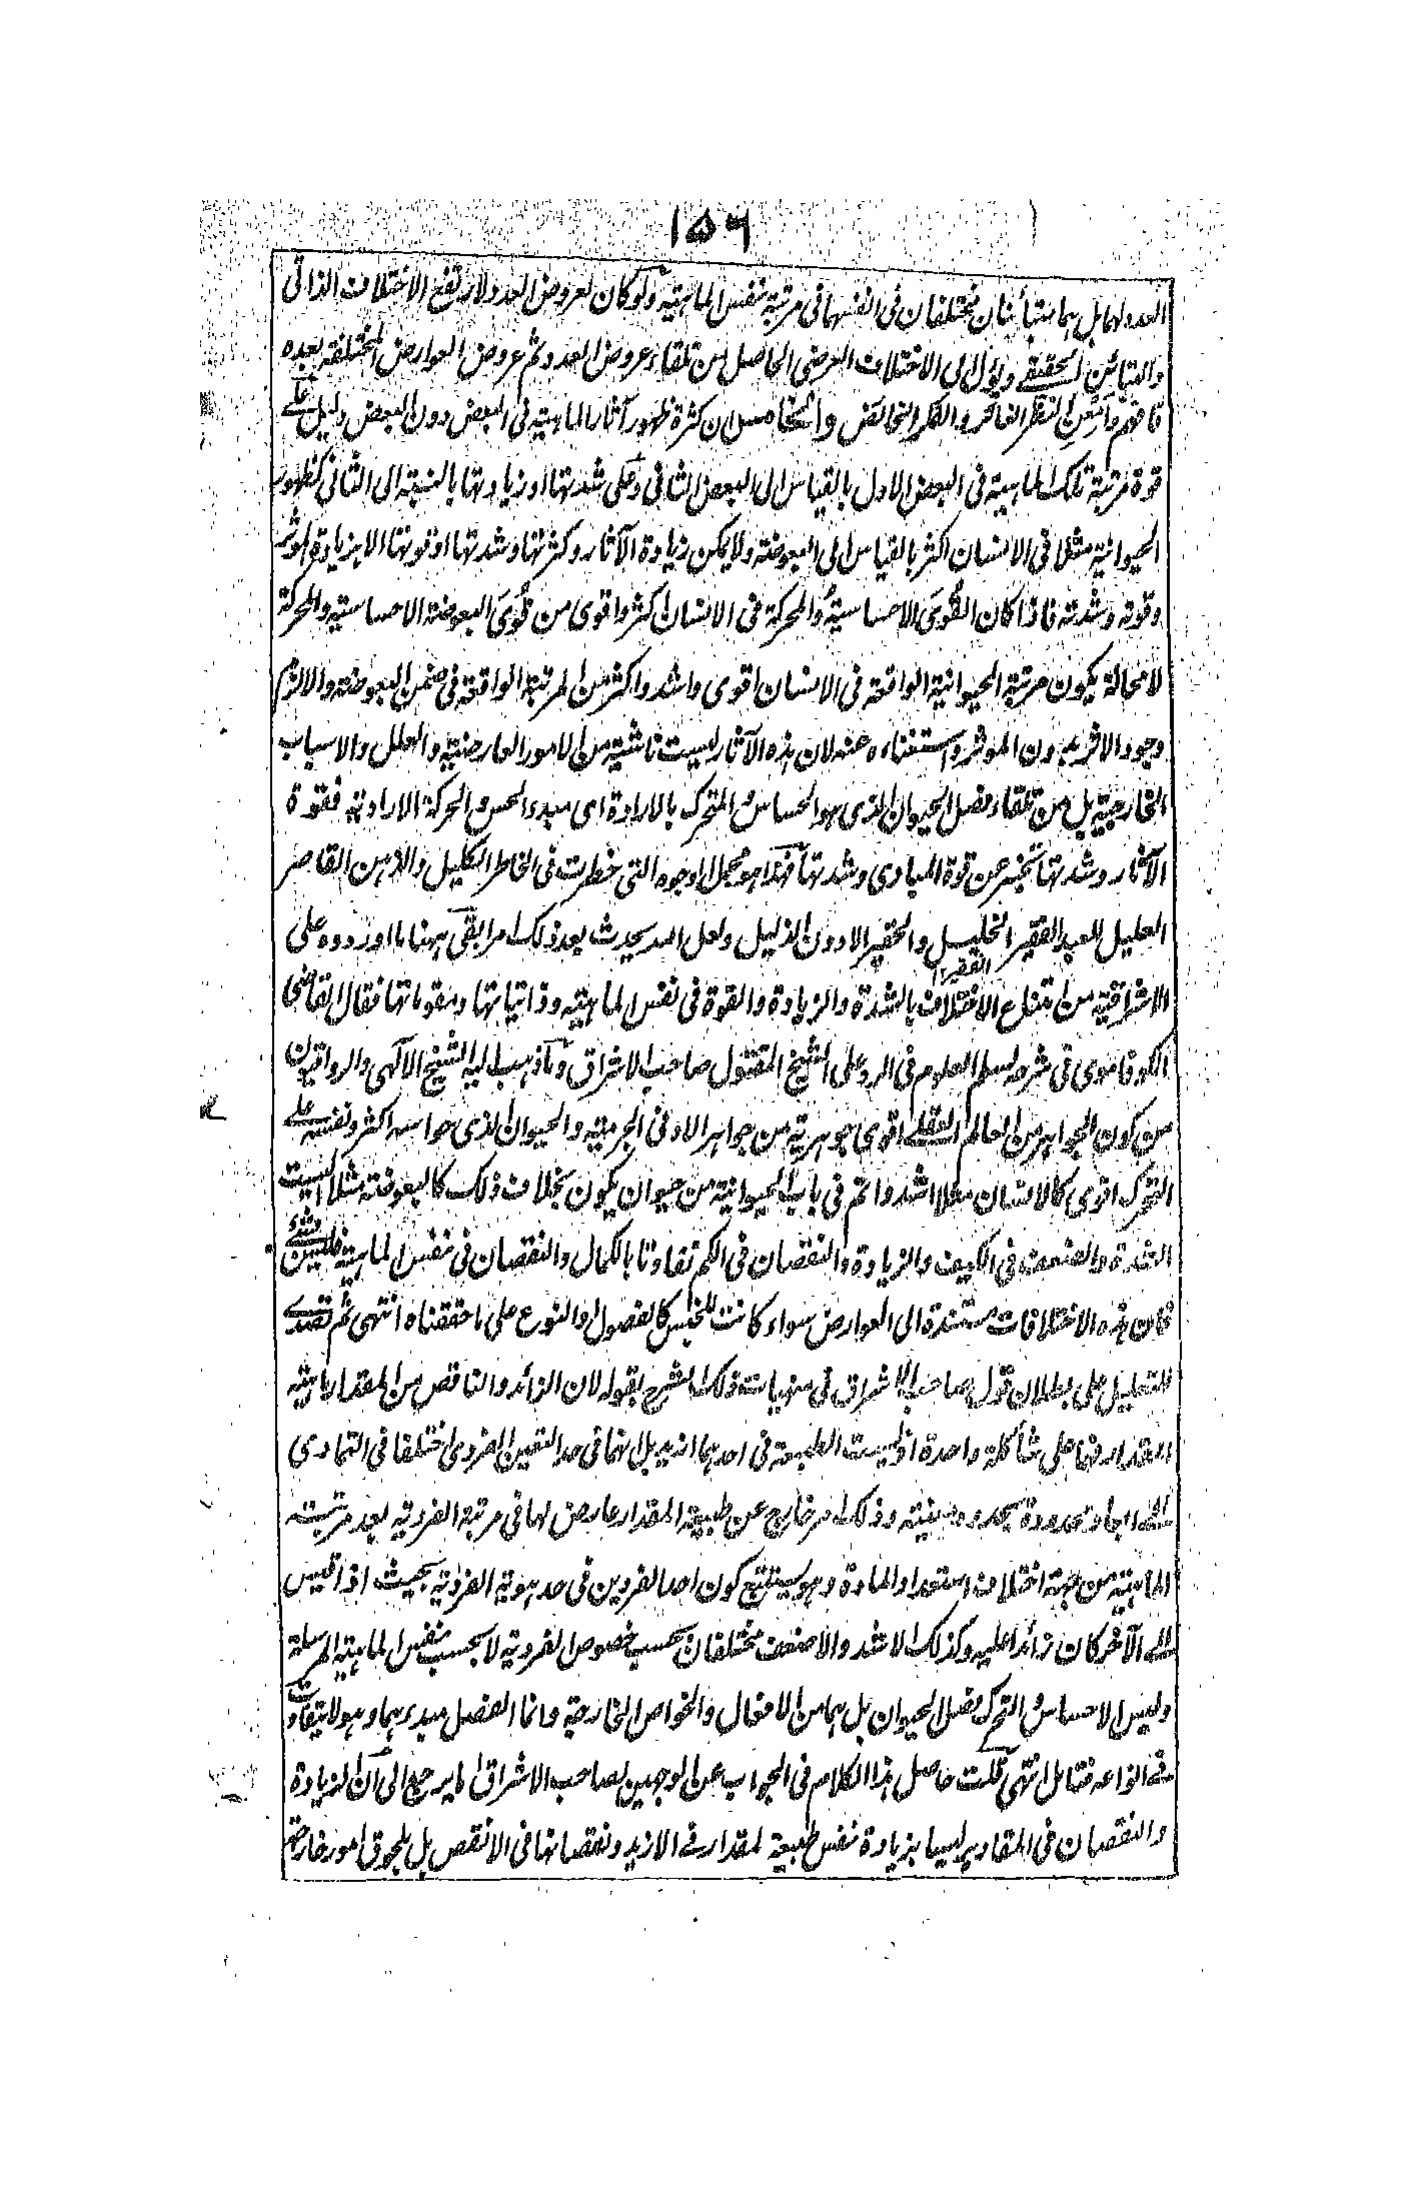 ١٥٦
العدد لهما بل هما متبائنان مختلفان فى انفسهما فى مرتبة نفس الماهية ولو كان لعروض العدد لارتفع الاختلاف الذاتى
والتبائن الحقيقے ويؤل الى الاختلاف العرضى الحاصل من تلقاء عروض العدد ثم عروض العوارض المختلفة بعده
فافهم وامعن النظر الغائر والفكر الخائض والخامس ان كثرة ظهور آثار الماهية فى البعض دون البعض دليل علے
قوة مرتبة تلك الماهية فى البعض الاول بالقياس الى البعض الثانى وعلى شدتها او زيادتها بالنسبة الى الثانى كظهور
الحيوانية مثلا فى الانسان اكثر بالقياس الى البعوضة ولا يمكن زيادة الآثار وكثرتها وشدتها او قوتها الا بزيادة المؤثر
وقوته وشدته فاذا كان القوى الاحساسية والمحركة فى الانسان اكثر واقوى من قوى البعوضة الاحساسية والمحركة
لا محالة يكون مرتبة الحيوانية الواقعة فى الانسان اقوى واشد واكثر من المرتبة الواقعة فى ضمن البعوضة والا لزم
وجود الاثر بدون المؤثر واستغناءه عنه لان هذه الآثار ليست ناشية من الامور العارضية والعلل والاسباب
الخارجية بل من تلقاء فصل الحيوان الذى هو الحساس والمتحرك بالارادة اى مبدء الحس والحركة الارادية فقوة
الآثار وشدتها تخبر عن قوة المبادى وشدتها فهذا هو مجمل الوجوه التى خطرت فى الخاطر الكليل والذهن القاصر
العليل للعبد الفقير الخليل والحقير الادون الذليل ولعل الله يحدث بعد ذلك امرا بقى ههنا ما اوردوه على
الاشراقية من امتناع الاختلاف بالشدة والزيادة والقوة فى نفس الماهية وذاتياتها ومقوماتها فقال القاضى
الكوفاموى فى شرحه لسلم العلوم فى الرد على الشيخ المقتول صاحب الاشراق وما ذهب اليه الشيخ الالهى والرواقيون
من كون الجواهر من العالم العقلے اقوى جوهرية من جواهر الادنى الجرمية والحيوان الذى حواسه اكثر ونفسه علے
التحرك اقوى كالانسان مثلا اشد واتم فى باب الحيوانية من حيوان يكون بخلاف ذلك كالبعوضة مثلا اليست
الشدة والضعف فى الكيف والزيادة والنقصان فى الكم تفاوتا بالكمال والنقصان فى نفس الماهية فليس بشئ
فان هذه الاختلافات مستندة الى العوارض سواء كانت للجنس كالفصول او النوع على ما حققناه انتهى ثم تصدے
للتعليل على بطلان قول صاحب الاشراق فى منهيات ذلك الشرح بقوله لان الزائد والناقص من المقدار ماهية
المقدار فيهما على شأكلة واحدة اذ ليست الطبيعة فى احدهما ازيد بل انهما فى حد التعين الفردى اختلفا فى التمادى
الے ابعاد محدودة بحدود معينة وذلك امر خارج عن طبيعة المقدار عارض لها فى مرتبة الفردية بعد مرتبة
الماهية من جهة اختلاف استعداد المادة وهو يستتبع كون احد الفردين فى حد هوية الفردية بحيث اذا قيس
الے الآخر كان زائدا عليه وكذلك الاشد والاضعف مختلفان بحسب خصوص الفردية لا بحسب نفس الماهية المرسلة
وليس الاحساس والتحرك فصل الحيوان بل هما من الافعال والخواص الخارجية وانما الفصل مبدءهما وهو لا يتفاوت
فے انواعه فتامل انتهى قلت حاصل هذا الكلام فى الجواب عن الوجهين لصاحب الاشراق ما يرجع الى ان الزيادة
والنقصان فى المقادير ليسا بزيادة نفس طبيعة المقدار فے الازيد ونقصانها فى الانقص بل بلحوق امور خارجة